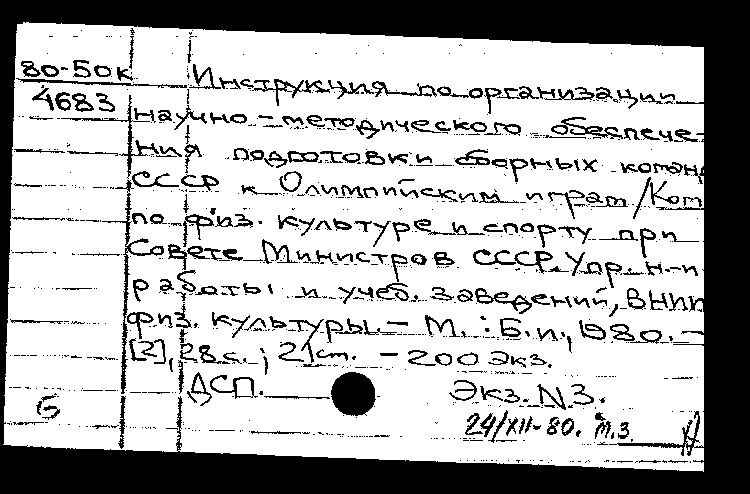 80-50к Инструкция по организации
4683 научно-методического обеспече-
ния подготовки сборных команд
СССР к Олимпийским играм /Ком
по физ. культуре и спорту при
Совете Министров СССР, Упр. н.-и
работы и учеб. заведений, ВНИИ
физ. культуры. - М. : Б.и., 1980. -
[2], 28 с. ; 21 ст. - 200 экз.
ДСП. Экз. N3.
б 24/XII-80. т.з.